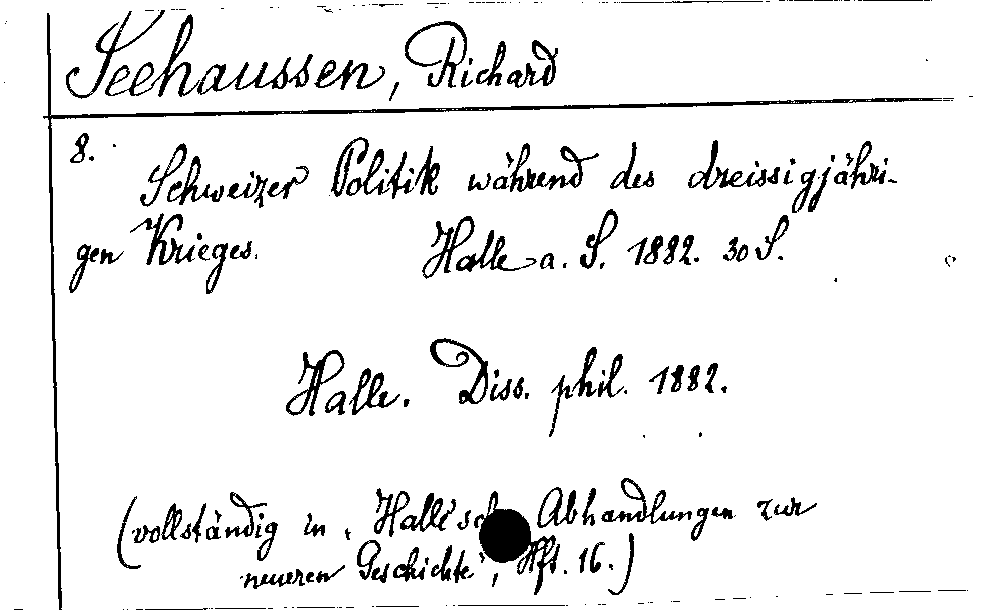 Seehaussen, Richard
8.
Schweizer Politik während des dreissigjähri-
gen Krieges. Halle a. S. 1882. 30 S.
Halle. Diss. phil. 1882.
(vollständig in „Hallesche Abhandlungen zur
neueren Geschichte", Hft. 16.)